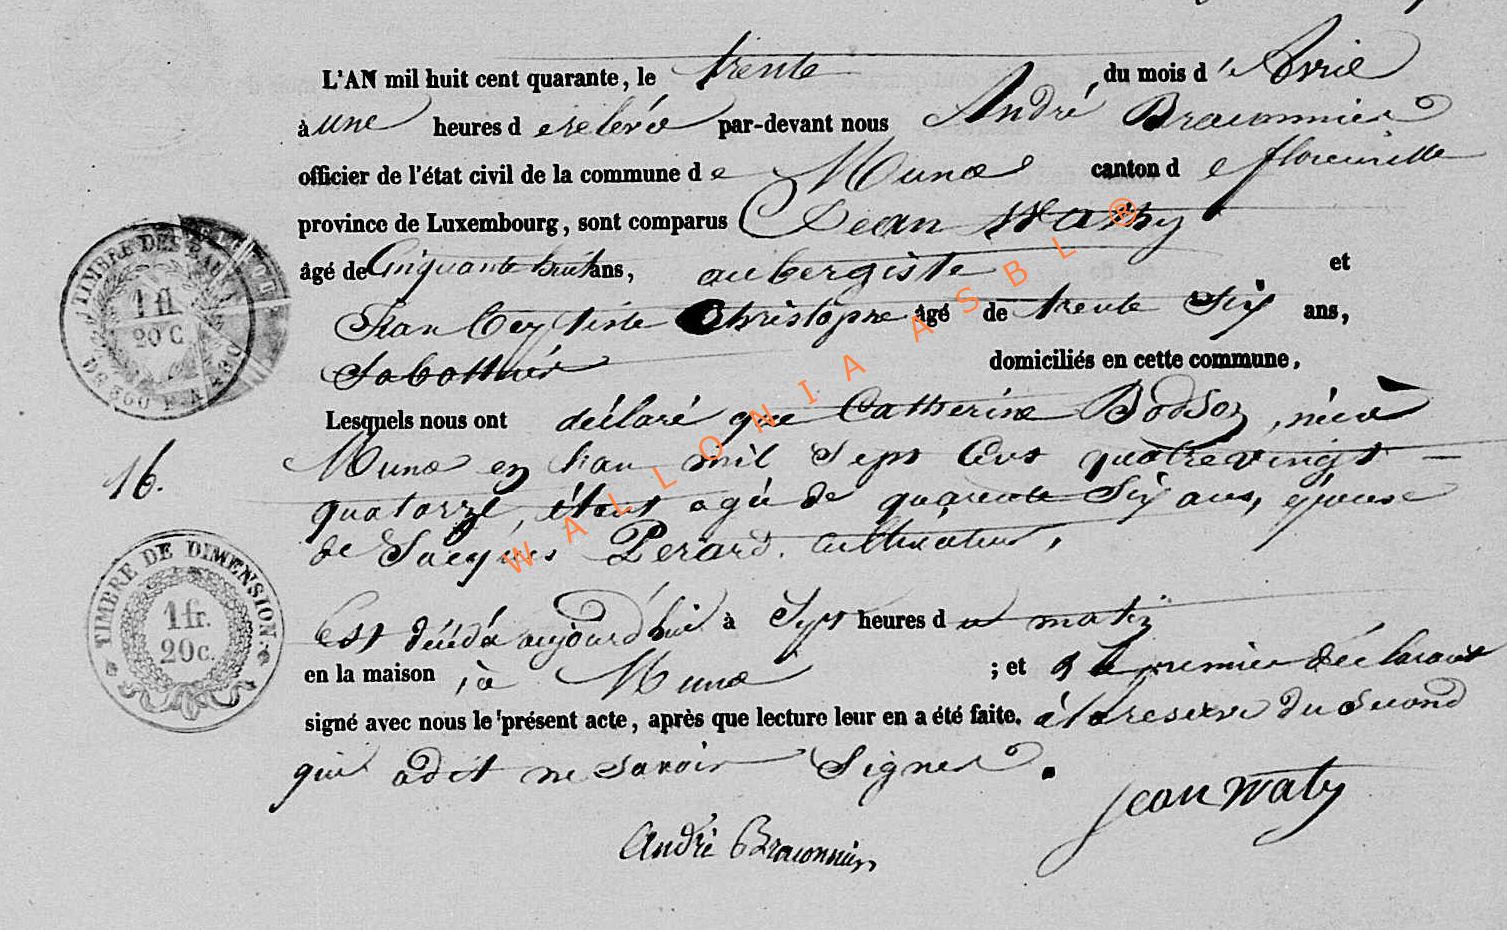 L'AN mil huit cent quarante, le trente du mois d'Avril
à une heures de relevée par-devant nous André Braconnier
officier de l'état civil de la commune de Muno canton de florenville
province de Luxembourg, sont comparus Jean Waty
âgé de Cinquante huit ans, aubergiste et
Jean Baptiste Christophe âgé de trente Six ans,
Sabottier domiciliés en cette commune,
Lesquels nous ont déclaré que Catherine Bodson, née à
Muno en l'an mil Sept Cens quatrevingt
quatorze, étant agée de quarente Six ans, épouse
de Jacques Perard. cultivateur,
Est décédée aujourd'hui à Sept heures du matin
16.
en la maison, à Muno ; et le premier déclarant
signé avec nous le présent acte, après que lecture leur en a été faite. à la reserve du Second
qui a dit ne savoir Signer.
jean waty
André Braconnier
TIMBRE DES
1 fl.
20 C
TIMBRE DE DIMENSION.
1 fr.
20 c.
WALLONIA ASBL ®